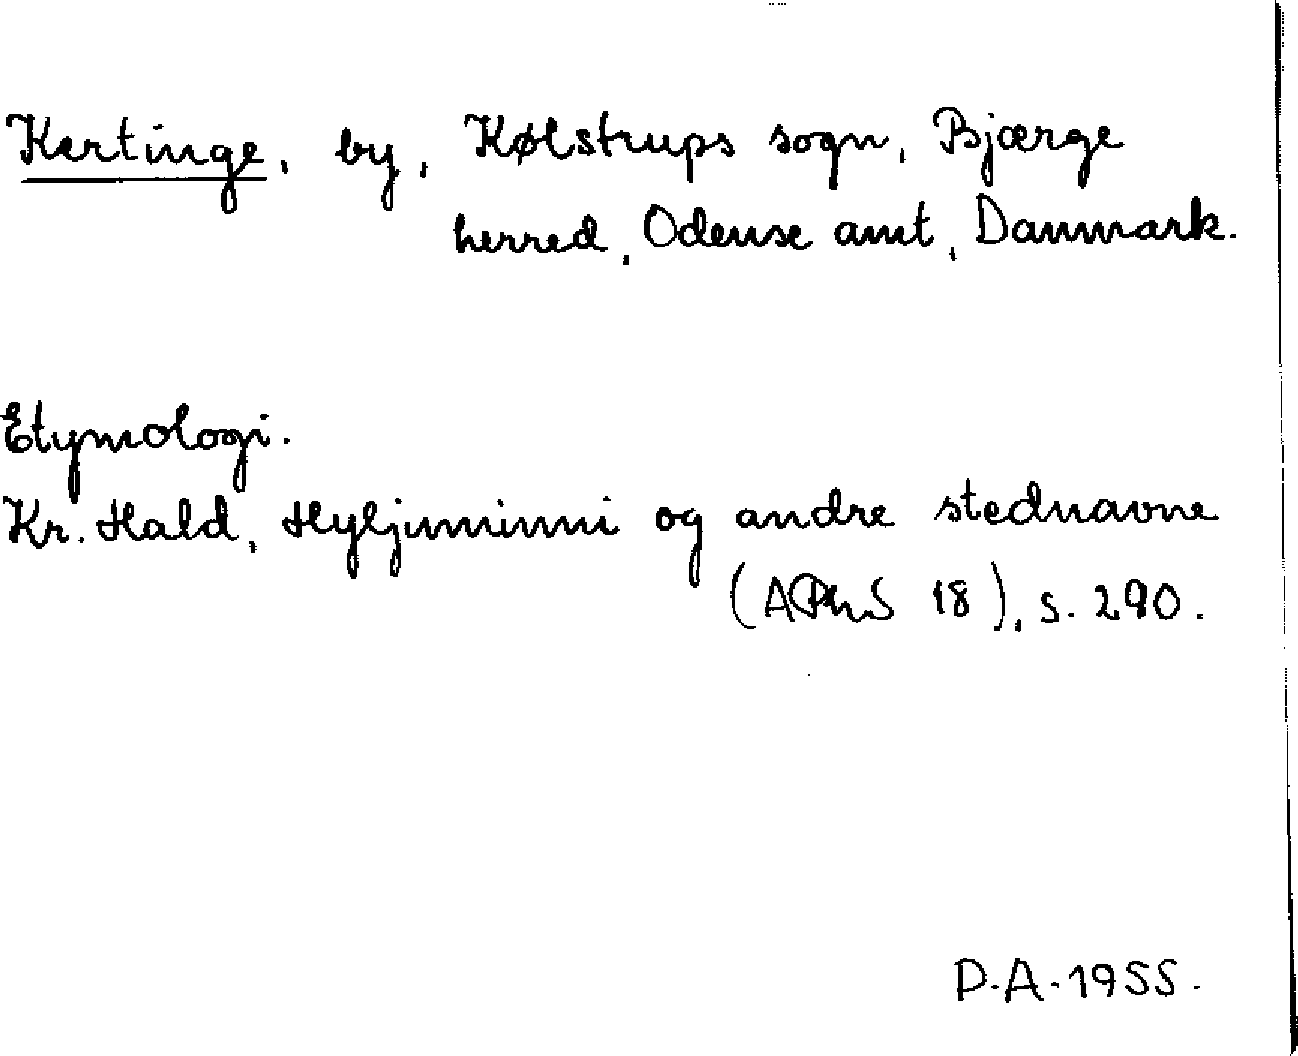 Kertinge, by, Kølstrups sogn, Bjærge
herred, Odense amt, Danmark.
Etymologi.
Kr. Hald, Hyljuminni og andre stednavne
(APhS 18), s. 290.
P.A. 1955.